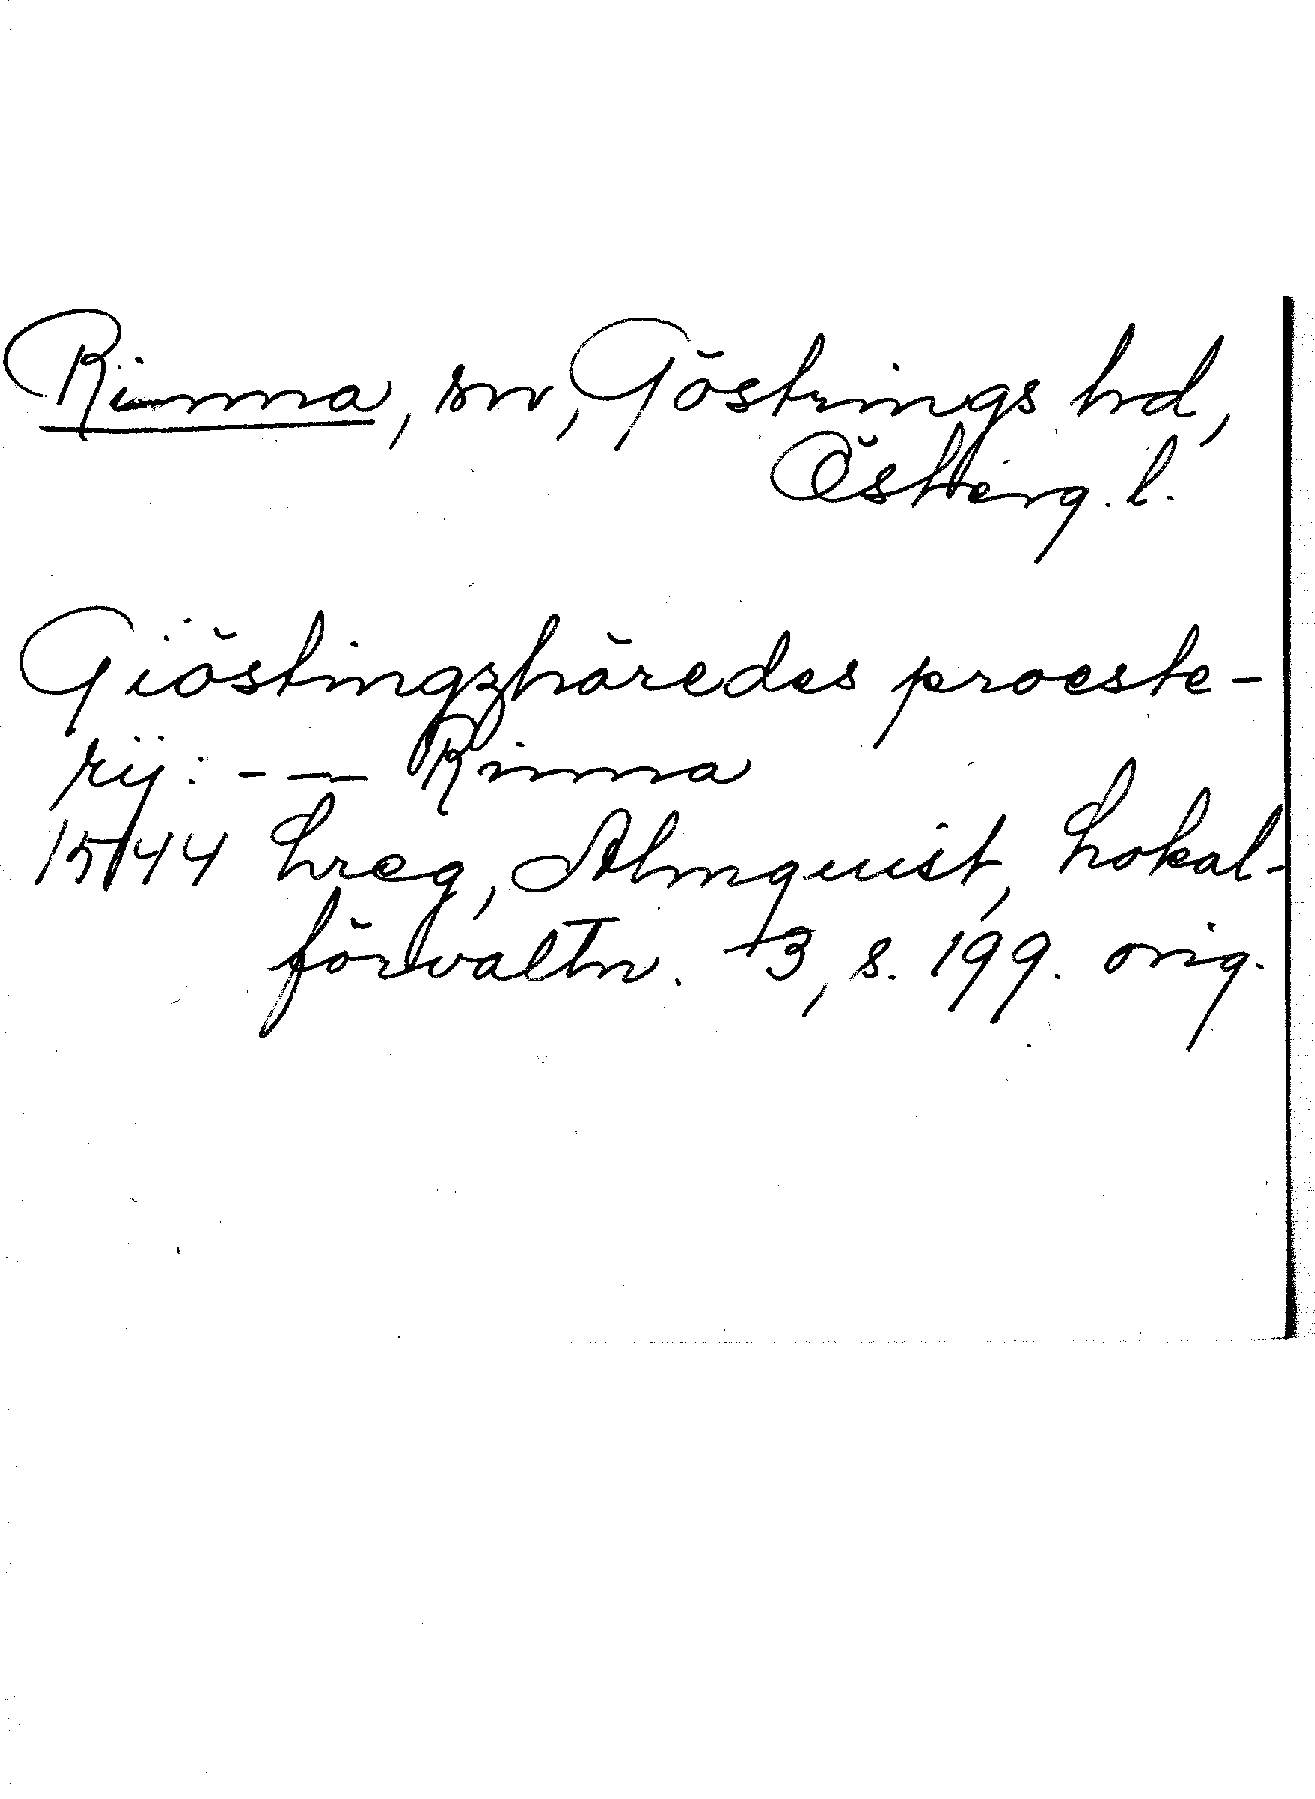 Rinna, sn, Göstrings hd,
Östberg. l.
Giöstingzhäredes proeste-
rij: - — Rinna
1544 Lreg, Almquist, Lokal-
förvaltn. +3, s. 199. orig.